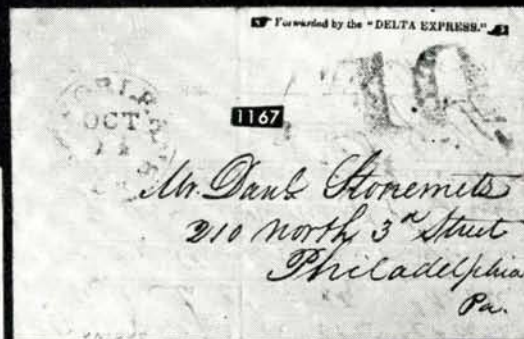 ☛ Forwarded by the "DELTA EXPRESS." ☚
10
OCT
1167
Mr. Danl Stonemets
210 North 3d Street
Philadelphia
Pa.